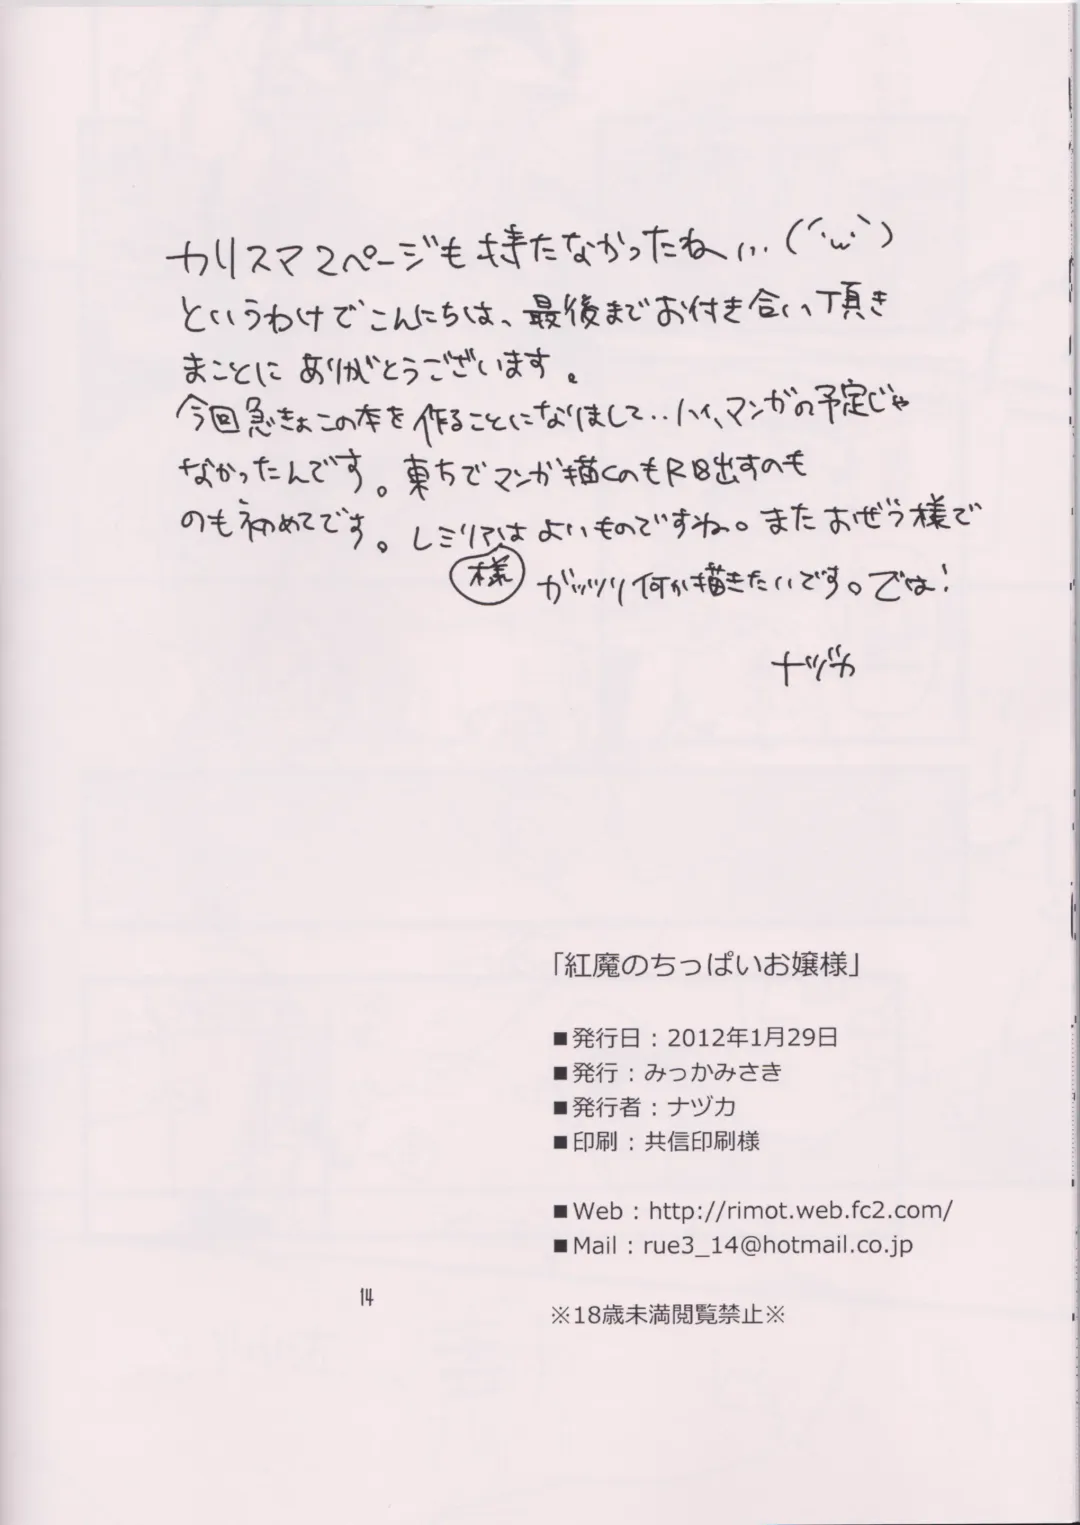 カリスマ2ページも持たなかったね、、、(´･ω･`)
というわけでこんにちは、最後までお付き合い頂き
まことにありがとうございます。
今回急きょこの本を作ることになりまして‥ハイ、マンガの予定じゃ
なかったんです。東方でマンガ描くのもR18出すのも
のも初めてです。レミリアはよいものですね。またおぜう様で
様 ガッツリ何か描きたいです。では!
ナヅカ
「紅魔のちっぱいお嬢様」
■発行日:2012年1月29日
■発行:みっかみさき
■発行者:ナヅカ
■印刷:共信印刷様
■Web:http://rimot.web.fc2.com/
■Mail:rue3_14@hotmail.co.jp
14
※18歳未満閲覧禁止※